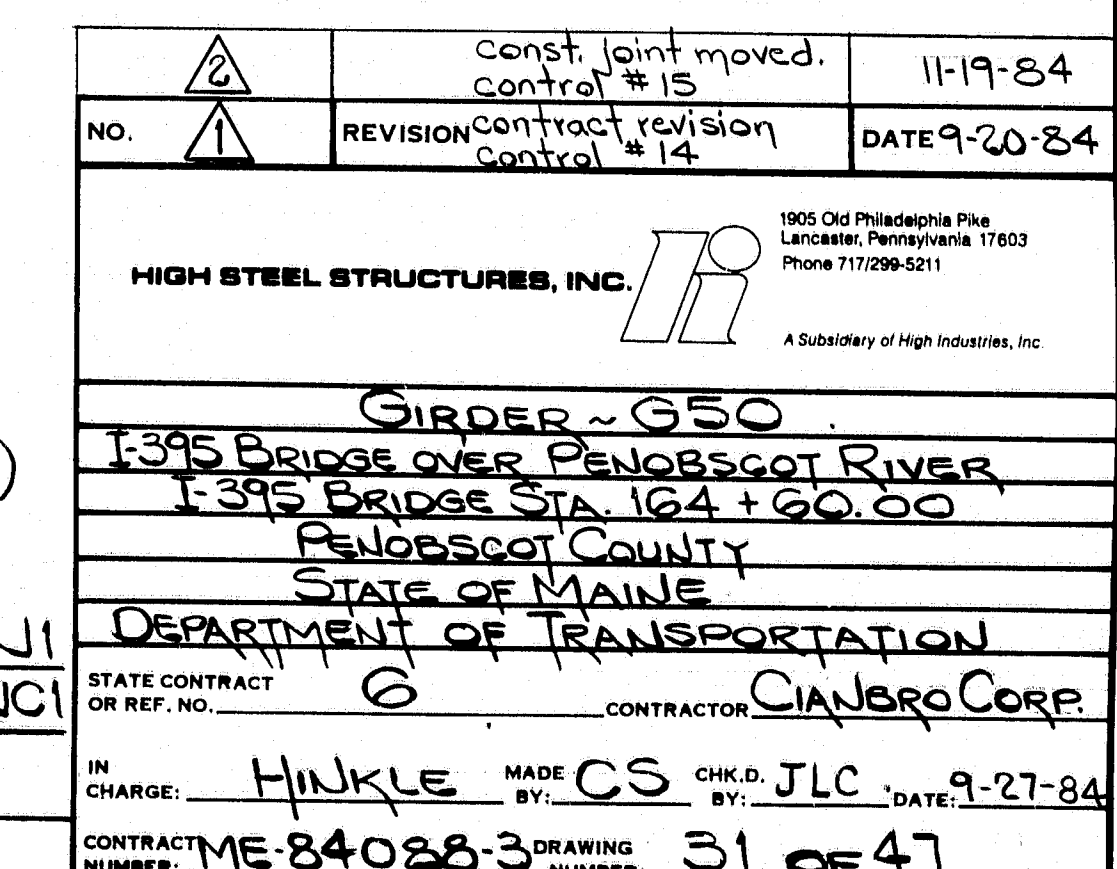 2 const. joint moved. 11-19-84
control # 15
NO. 1 REVISION contract revision DATE 9-20-84
control # 14
HIGH STEEL STRUCTURES, INC.
1905 Old Philadelphia Pike
Lancaster, Pennsylvania 17603
Phone 717/299-5211
A Subsidiary of High Industries, Inc.
GIRDER ~ G50
I-395 BRIDGE OVER PENOBSCOT RIVER
I-395 BRIDGE STA. 164 + 60.00
PENOBSCOT COUNTY
STATE OF MAINE
DEPARTMENT OF TRANSPORTATION
STATE CONTRACT
OR REF. NO. 6 CONTRACTOR CIANBRO CORP.
IN
CHARGE: HINKLE MADE BY: CS CHK.D. BY: JLC DATE: 9-27-84
CONTRACT NUMBER: ME-84088-3 DRAWING NUMBER: 31 OF 47